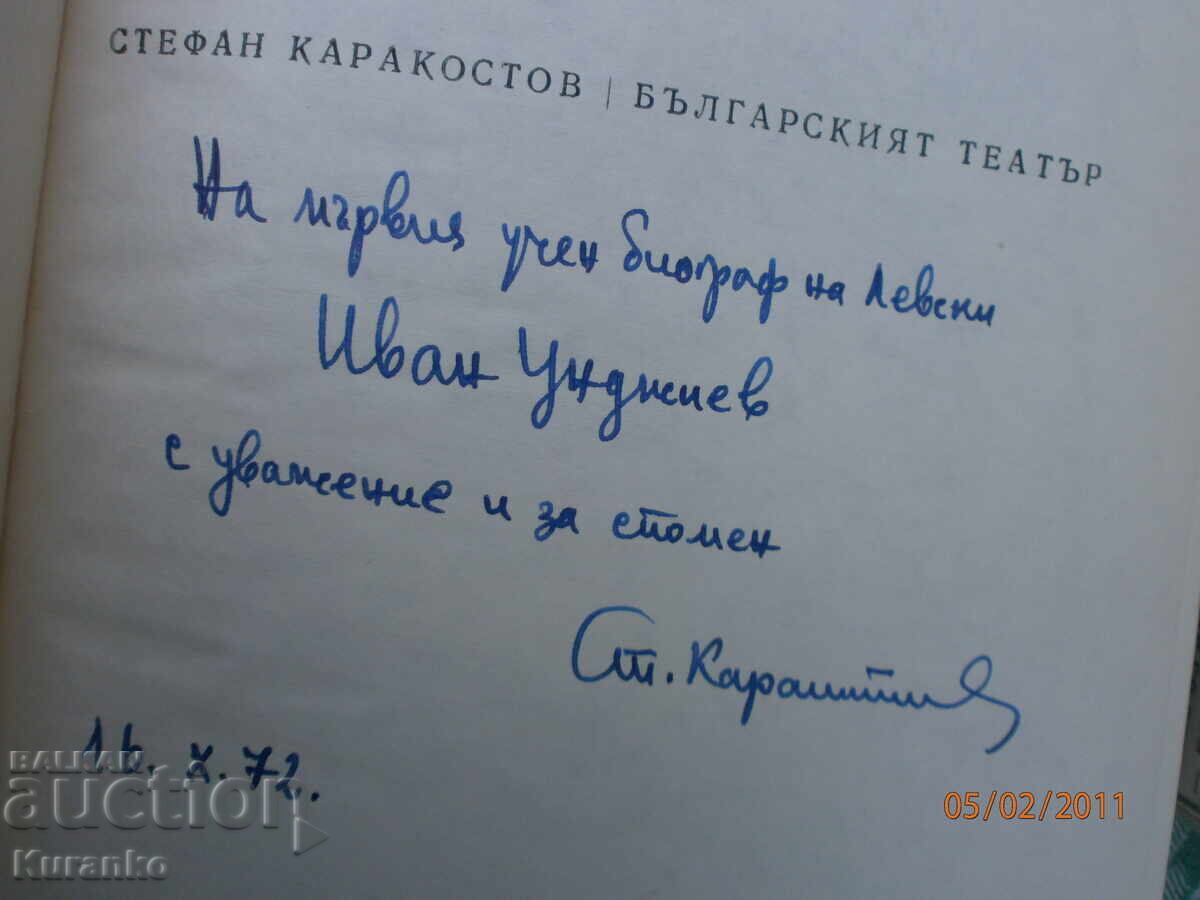 СТЕФАН КАРАКОСТОВ | БЪЛГАРСКИЯТ ТЕАТЪР
На първия учен биограф на Левски
Иван Унджиев
с уважение и за спомен
Ст. Каракостов
16. X. 72.
BALKAN
auction
Kuranko
05/02/2011